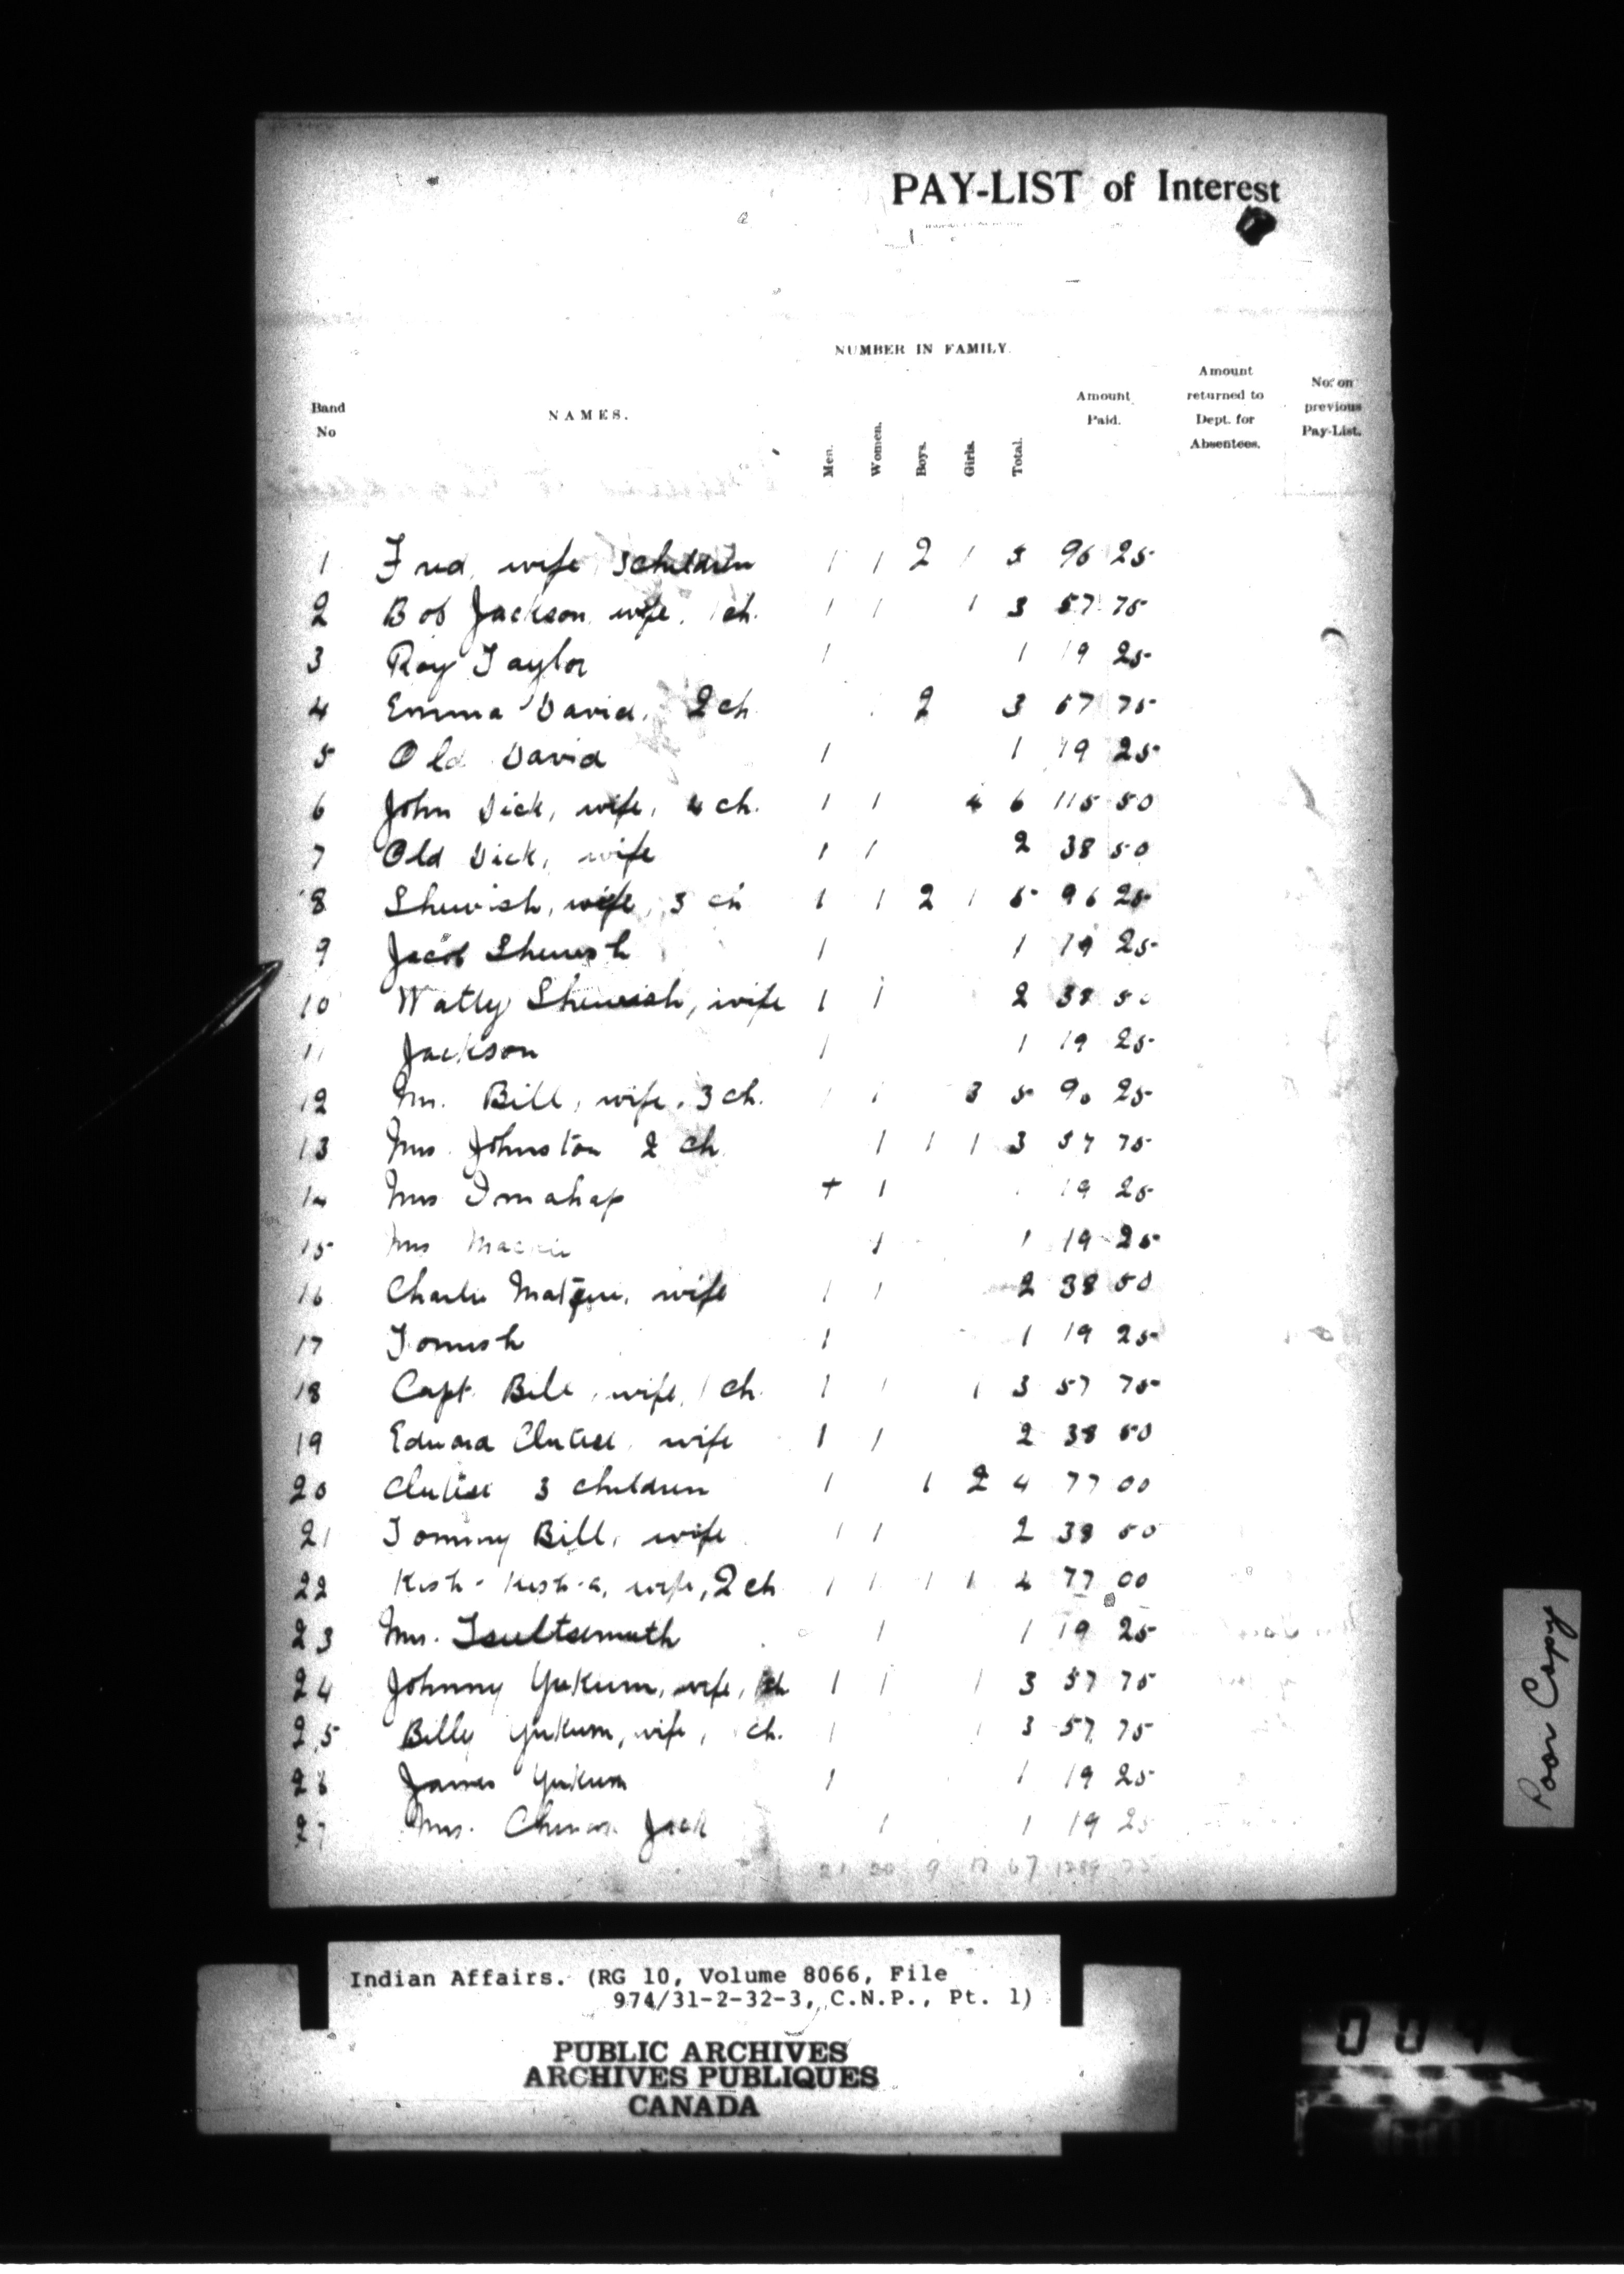 PAY-LIST of Interest
NUMBER IN FAMILY.
Band No
NAMES.
Men.
Women.
Boys.
Girls.
Total.
Amount Paid.
Amount returned to Dept. for Absentees.
No. on previous Pay-List.
1 Fred, wife, 3 children 1 1 2 1 5 96 25
2 Bob Jackson, wife, 1 ch. 1 1 1 3 57 75
3 Roy Taylor 1 1 19 25
4 Emma David, 2 ch 2 3 57 75
5 Old David 1 1 19 25
6 John Dick, wife, 4 ch. 1 1 4 6 115 50
7 Old Dick, wife 1 1 2 38 50
8 Shewish, wife, 3 ch 1 1 2 1 5 96 25
9 Jacob Shewish 1 1 19 25
10 Watty Shewish, wife 1 1 2 38 50
11 Jackson 1 1 19 25
12 Mr. Bill, wife, 3 ch. 1 1 3 5 96 25
13 Mrs. Johnston 2 ch 1 1 1 3 57 75
14 Mrs Imahap + 1 1 19 25
15 Mrs 1 1 19 25
16 Charlie wife 1 1 2 38 50
17 Tomish 1 1 19 25
18 Capt. Bill, wife, 1 ch. 1 1 1 3 57 75
19 Edward Clutesi, wife 1 1 2 38 50
20 Clutesi 3 children 1 1 2 4 77 00
21 Tommy Bill, wife 1 1 2 38 50
22 Kish-Kish-a, wife, 2 ch 1 1 1 1 4 77 00
23 Mrs. Tsultsemuth 1 1 19 25
24 Johnny Yukum, wife, 1 ch 1 1 1 3 57 75
25 Billy Yukum, wife, ch. 1 1 3 57 75
26 James Yukum 1 1 19 25
27 Mrs. Jack 1 1 19 25
21 20 9 17 67 1289 75
Poor Copy
Indian Affairs. (RG 10, Volume 8066, File
974/31-2-32-3, C.N.P., Pt. 1)
PUBLIC ARCHIVES
ARCHIVES PUBLIQUES
CANADA